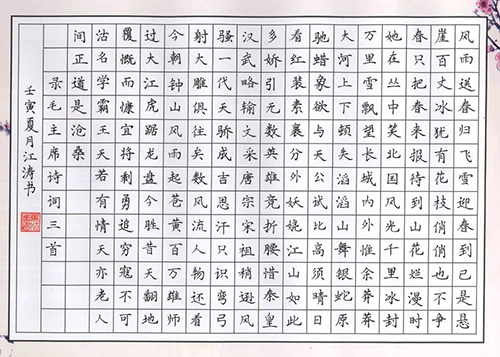 风雨送春归飞雪迎春到已是悬
崖百丈冰犹有花枝俏俏也不争
春只把春来报待到山花烂漫时
她在丛中笑北国风光千里冰封
万里雪飘望长城内外惟余莽莽
大河上下顿失滔滔山舞银蛇原
驰蜡象欲与天公试比高须晴日
看红装素裹分外妖娆江山如此
多娇引无数英雄竞折腰惜秦皇
汉武略输文采唐宗宋祖稍逊风
骚一代天骄成吉思汗只识弯弓
射大雕俱往矣数风流人物还看
今朝钟山风雨起苍黄百万雄师
过大江虎踞龙盘今胜昔天翻地
覆慨而慷宜将剩勇追穷寇不可
沽名学霸王天若有情天亦老人
间正道是沧桑
录毛主席诗词三首
壬寅夏月江涛书